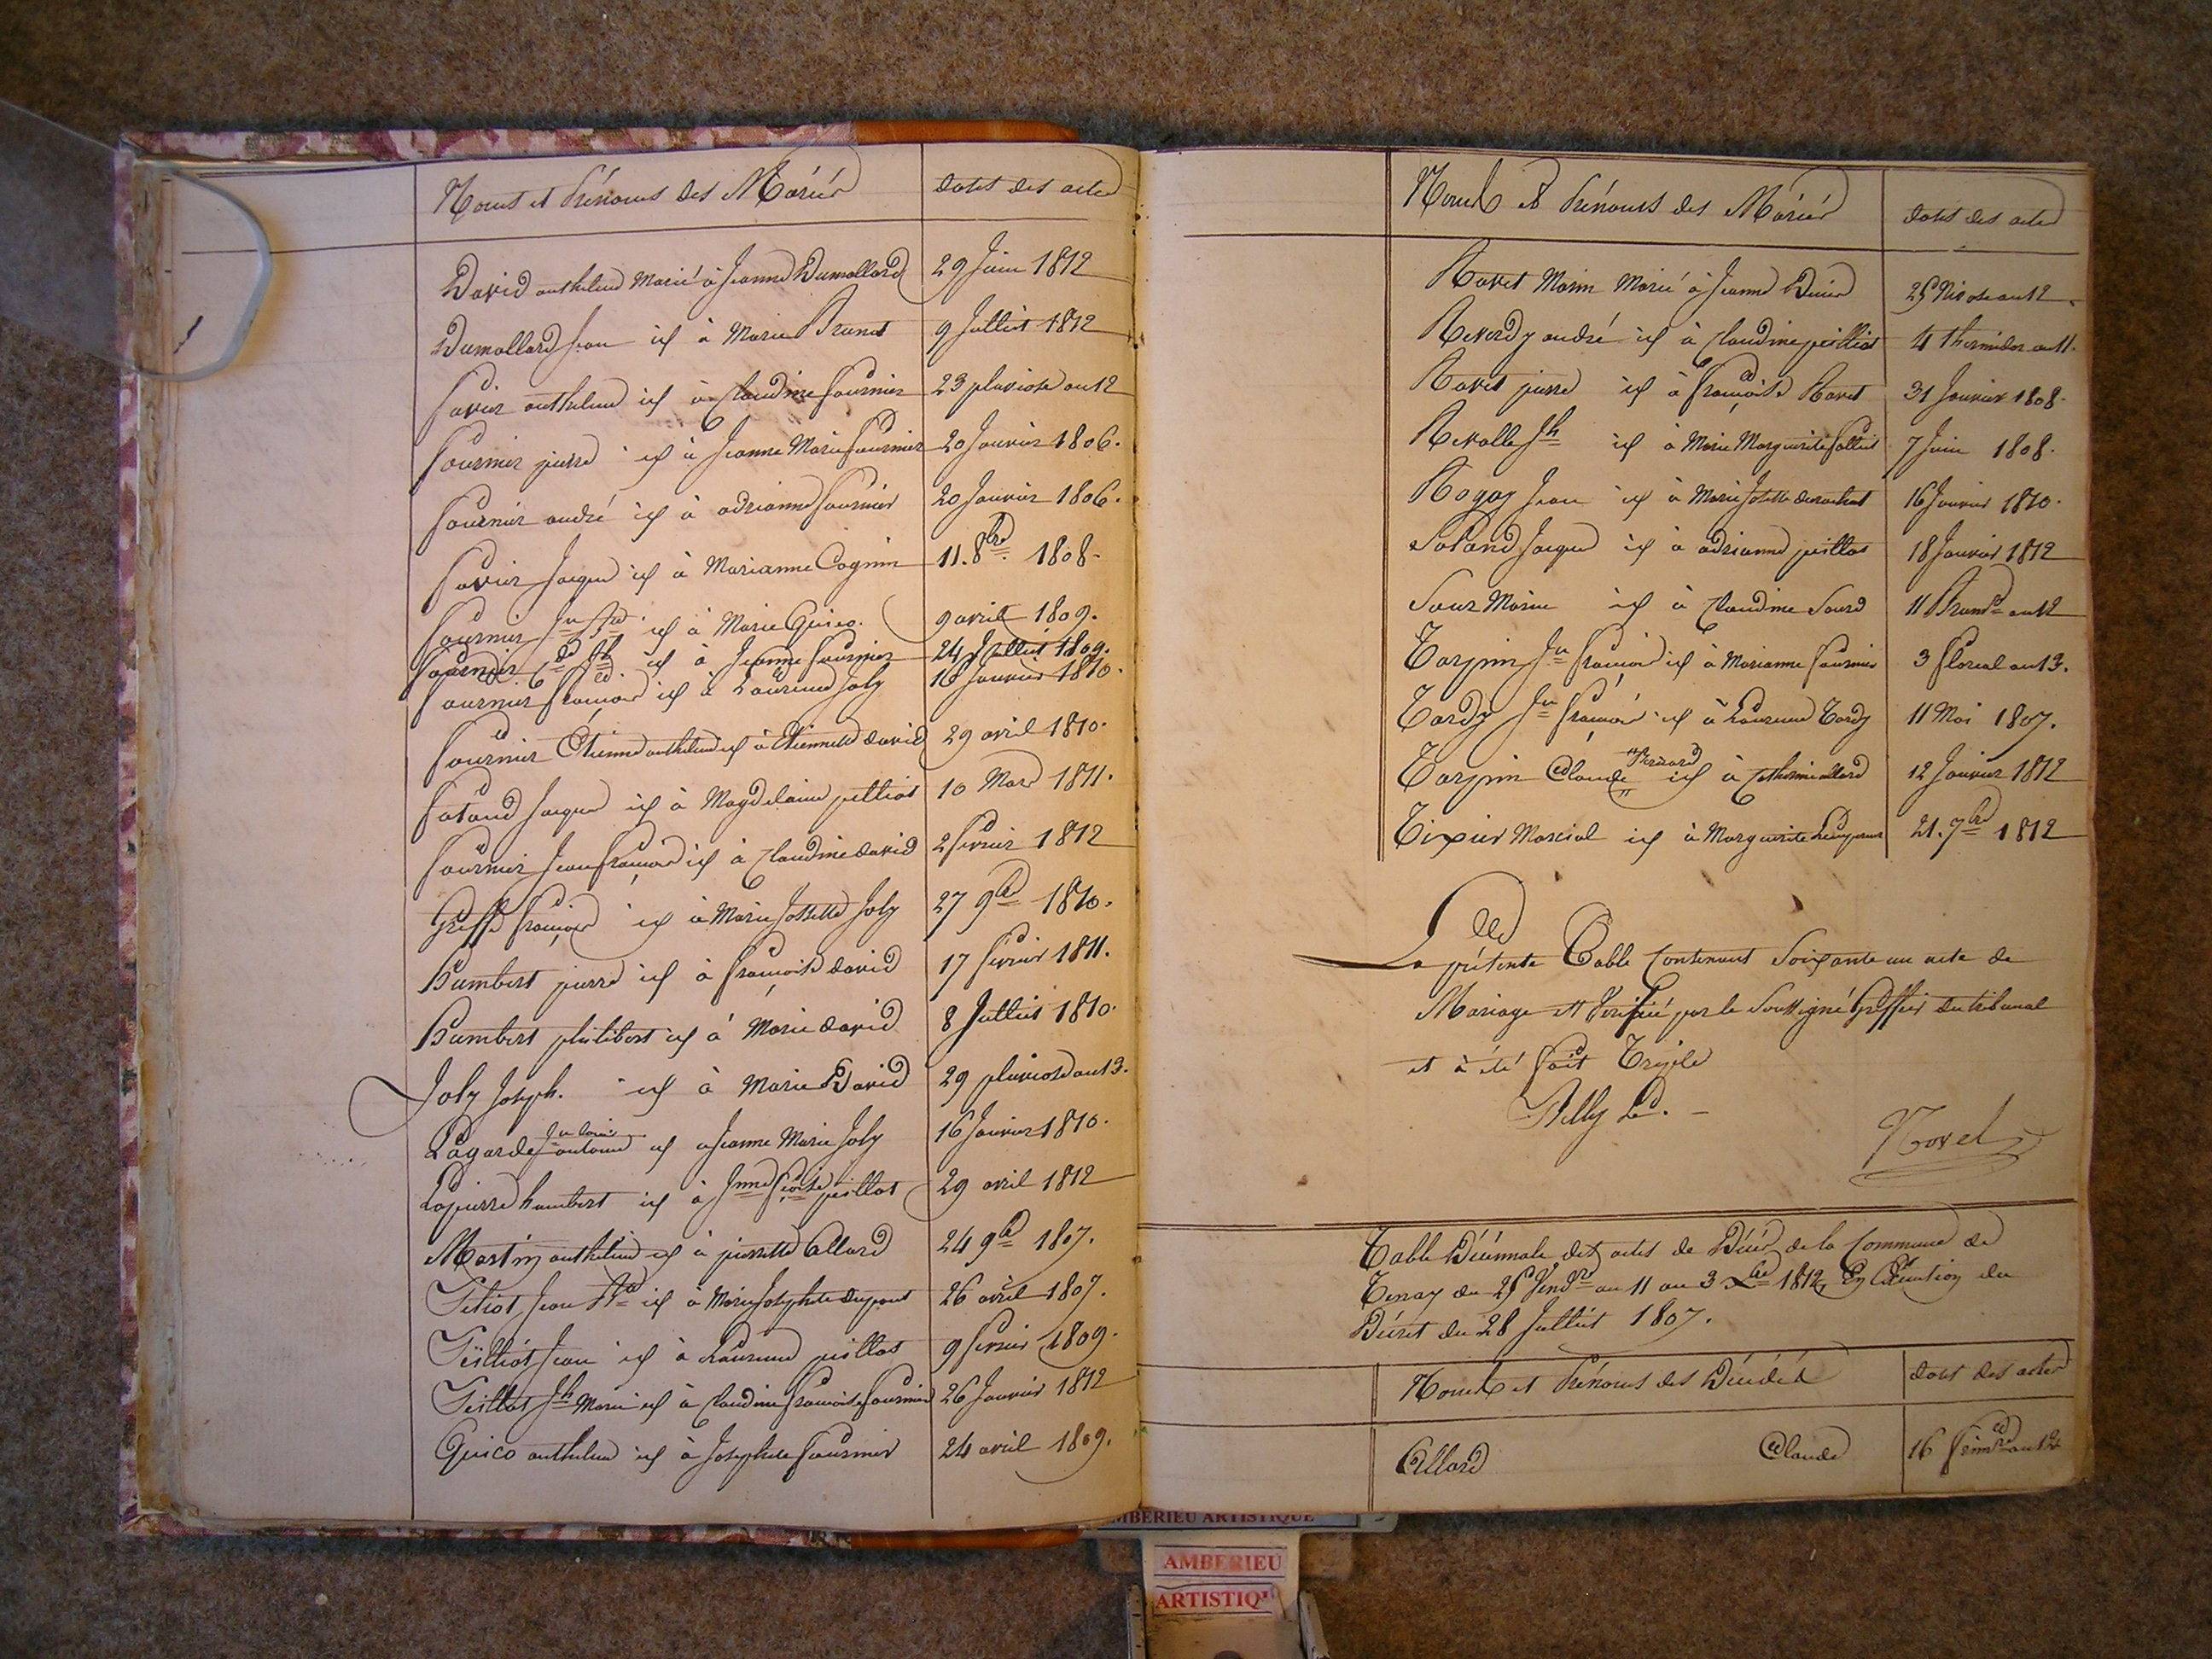 Noms et Prénoms des Mariés
dates des actes
David anthelme Marié à Jeanne Dumollard 29 Juin 1812
Dumollard Jean id à Marie Brunet 9 Juillet 1812
Favier anthelme id à Claudine fournier 23 pluviose an 12
fournier pierre id à Jeanne Marie fournier 20 Janvier 1806.
fournier andré id à adrianne fournier 20 Janvier 1806.
favier Jaques id à Marianne Cognin 11. 8bre 1808.
fournier Jn id à Marie Guico. 9 avril 1809.
fournier Cde Jh id à Jeanne fournier 24 Juillet 1809.
fournier françois id à Laurence Joly 16 Janvier 1810.
fournier Etienne anthelme id à Etiennette david 29 avril 1810.
Jaques id à Magdelaine peilliot 10 Mars 1811.
fournier Jean françois id à Claudine david 2 fevrier 1812
Greffe françois id à Marie Josette Joly 27 9bre 1810.
Humbert pierre id à françoise david 17 fevrier 1811.
Humbert philibert id à Marie david 8 Juillet 1810.
Joly Joseph. id à Marie David 29 pluviose an 13.
Lagarde Jn Louis antoine id a Jeanne Marie Joly 16 Janvier 1810.
Lapierre humbert id à Jnne fçoise peillot 29 avril 1812
Martin anthelme id à pierrette Allard 24 9bre 1807.
Jean id à Marie Josephte dupont 26 avril 1807.
Peilliot Jean id à Laurence peillot 9 fevrier 1809.
Peillot Jh Marie id à Claudine françoise fournier 26 Janvier 1812
Guico anthelme id à Josephte fournier 24 avril 1809.
Noms et Prénoms des Mariés
dates des actes
Ravet Marin Marié à Jeanne 25 Nivose an 12
Reverdy andré id à Claudine peilliot 4 thermidor an 11.
Ravet pierre id à françoise Ravet 31 Janvier 1808.
Revolle Jh id à Marie Marguerite 7 Juin 1808.
Jean id à Marie Josette 16 Janvier 1810.
Jaques id à adrianne peillot 18 Janvier 1812
id à Claudine 11 Brumre an 12
Tarpin Jn françois id à Marianne fournier 3 floreal an 13.
Tardy Jn françois id à Laurence Tardy 11 Mai 1807.
Tarpin Claude Bernard id à Catherine allard 12 Janvier 1812
Tixier Marcial id à Marguerite 21. 7bre 1812
La présente Table Contenant Soixante un acte de
Mariage et Verifiée par le Soussigné Greffier du tribunal
et à été fait Triple
Novel
Table Décennale des actes de Décès de la Commune de
Tenay du 25 Vendre an 11 au 3 Xbre 1812, En Execution du
Décret du 28 Juillet 1807.
Noms et Prénoms des Décédés
dates des actes
Allard Claude 16 frimre an 12
AMBERIEU ARTISTIQUE
AMBERIEU
ARTISTIQ